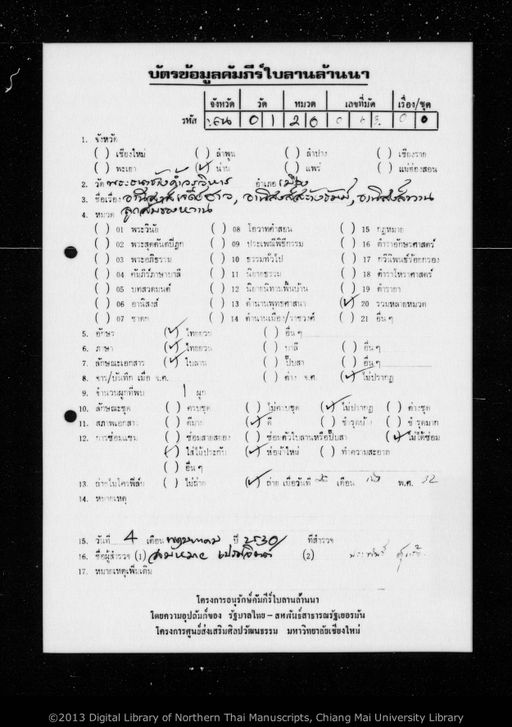 บัตรข้อมูลคัมภีร์ใบลานล้านนา
จังหวัด วัด หมวด เลขที่มัด เรื่อง/ชุด
รหัส 0 1 2 0 0 0
1. จังหวัด
( ) เชียงใหม่ ( ) ลำพูน ( ) ลำปาง ( ) เชียงราย
( ) พะเยา (✓) น่าน ( ) แพร่ ( ) แม่ฮ่องสอน
2. วัด พระธาตุช้างค้ำวรวิหาร อำเภอ เมือง
3. ชื่อเรื่อง
4. หมวด
( ) 01 พระวินัย ( ) 08 โอวาทคำสอน ( ) 15 กฎหมาย
( ) 02 พระสุตตันตปิฎก ( ) 09 ประเพณีพิธีกรรม ( ) 16 ตำราอักษรศาสตร์
( ) 03 พระอภิธรรม ( ) 10 ธรรมทั่วไป ( ) 17 กวีนิพนธ์ร้อยกรอง
( ) 04 คัมภีร์ภาษาบาลี ( ) 11 นิยายธรรม ( ) 18 ตำราโหราศาสตร์
( ) 05 บทสวดมนต์ ( ) 12 นิยายนิทานพื้นบ้าน ( ) 19 ตำรายา
( ) 06 อานิสงส์ ( ) 13 ตำนานพุทธศาสนา (✓) 20 รวมหลายหมวด
( ) 07 ชาดก ( ) 14 ตำนานเมือง/ราชวงศ์ ( ) 21 อื่น ๆ
5. อักษร (✓) ไทยยวน ( ) อื่น ๆ
6. ภาษา (✓) ไทยยวน ( ) บาลี ( ) อื่น ๆ
7. ลักษณะเอกสาร (✓) ใบลาน ( ) ปั๊บสา ( ) อื่น ๆ
8. จาร/บันทึก เมื่อ จ.ศ. ( ) ค่าง จ.ศ. (✓) ไม่ปรากฏ
9. จำนวนผูกที่พบ 1 ผูก
10. ลักษณะชุด ( ) ครบชุด ( ) ไม่ครบชุด (✓) ไม่ปรากฏ ( ) ค่างชุด
11. สภาพเอกสาร ( ) ดีมาก (✓) ดี ( ) ชำรุดบ้าง ( ) ชำรุดมาก
12. การซ่อมแซม ( ) ซ่อมสายสยอง ( ) ซ่อมตัวใบลานหรือปั๊บสา (✓) ไม่ได้ซ่อม
(✓) ใส่ไม้ประกับ (✓) ห่อผ้าใหม่ ( ) ทำความสะอาด
( ) อื่น ๆ
13. ถ่ายไมโครฟิล์ม ( ) ไม่ถ่าย (✓) ถ่าย เมื่อวันที่ เดือน พ.ศ. 32
14. หมายเหตุ
15. วันที่ 4 เดือน พฤษภาคม ปี 2530 ที่สำรวจ
16. ชื่อผู้สำรวจ (1) (2)
17. หมายเหตุเพิ่มเติม
โครงการอนุรักษ์คัมภีร์ใบลานล้านนา
โดยความอุปถัมภ์ของ รัฐบาลไทย - สหพันธ์สาธารณรัฐเยอรมัน
โครงการศูนย์ส่งเสริมศิลปวัฒนธรรม มหาวิทยาลัยเชียงใหม่
©2013 Digital Library of Northern Thai Manuscripts, Chiang Mai University Library